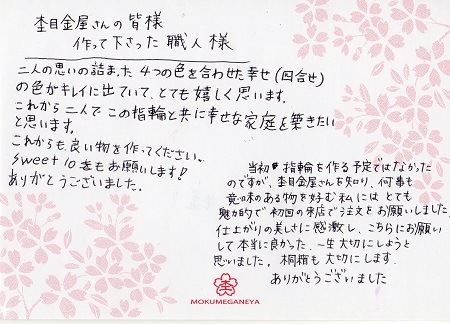 杢目金屋さんの皆様
作って下さった職人様
二人の思いの詰まった4つの色を合わせた幸せ(四合せ)
の色がキレイに出ていて、とても嬉しく思います。
これから二人でこの指輪と共に幸せな家庭を築きたい
と思います。
これからも良い物を作ってください。
sweet 10もお願いします!
ありがとうございました。
当初指輪を作る予定ではなかった
のですが、杢目金屋さんを知り、何事も
意味のある物を好む私にはとても
魅力的で初回の来店で注文をお願いしました。
仕上がりの美しさに感激し、こちらにお願い
して本当に良かった、一生大切にしようと
思いました。桐箱も大切にします。
ありがとうございました
MOKUMEGANEYA